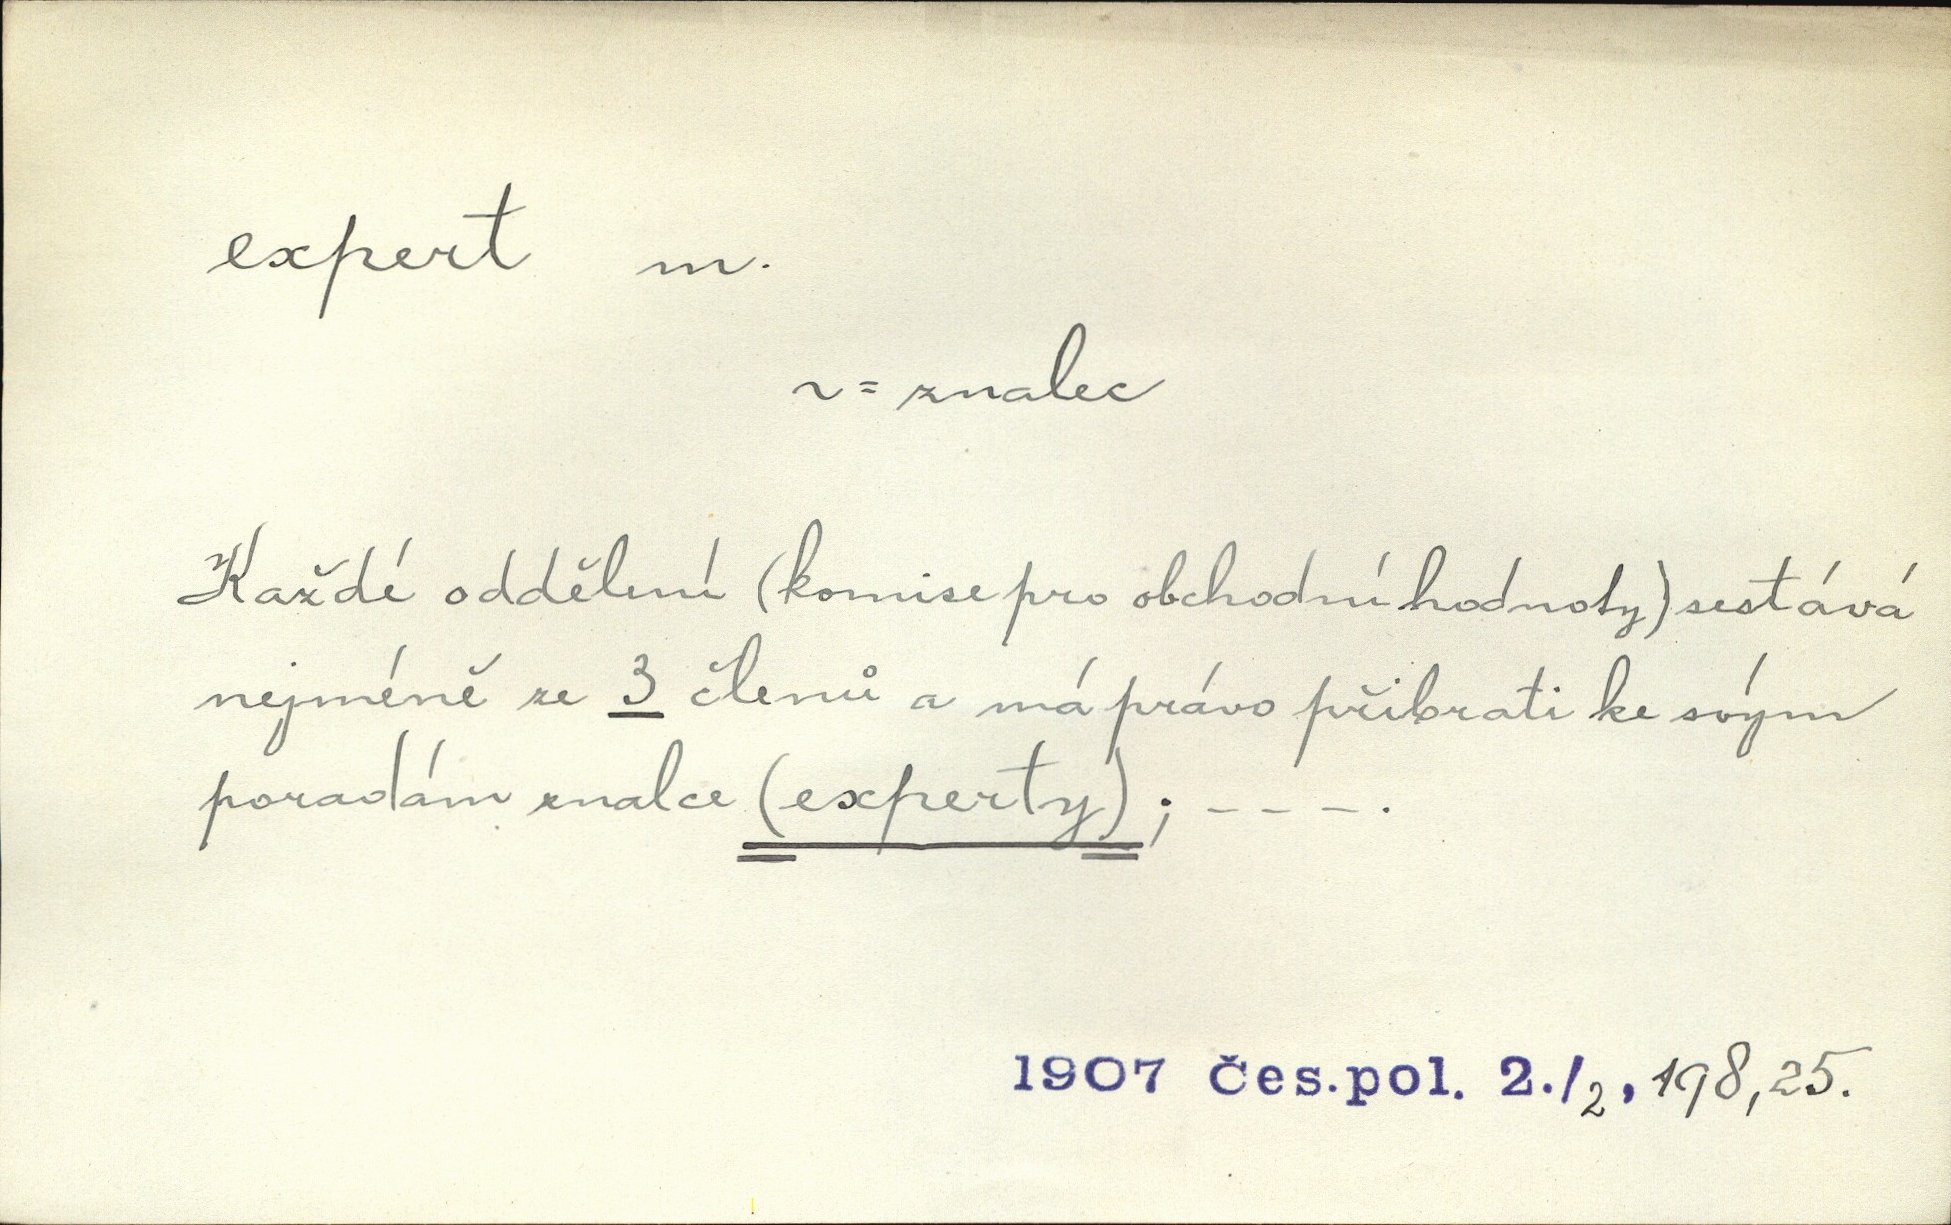 expert m.
~ = znalec
Každé oddělení (komise pro obchodní hodnoty) sestává
nejméně ze 3 členů a má právo přibrati ke svým
poradám znalce (experty); - - - .
1907 čes.pol. 2./2, 198, 25.